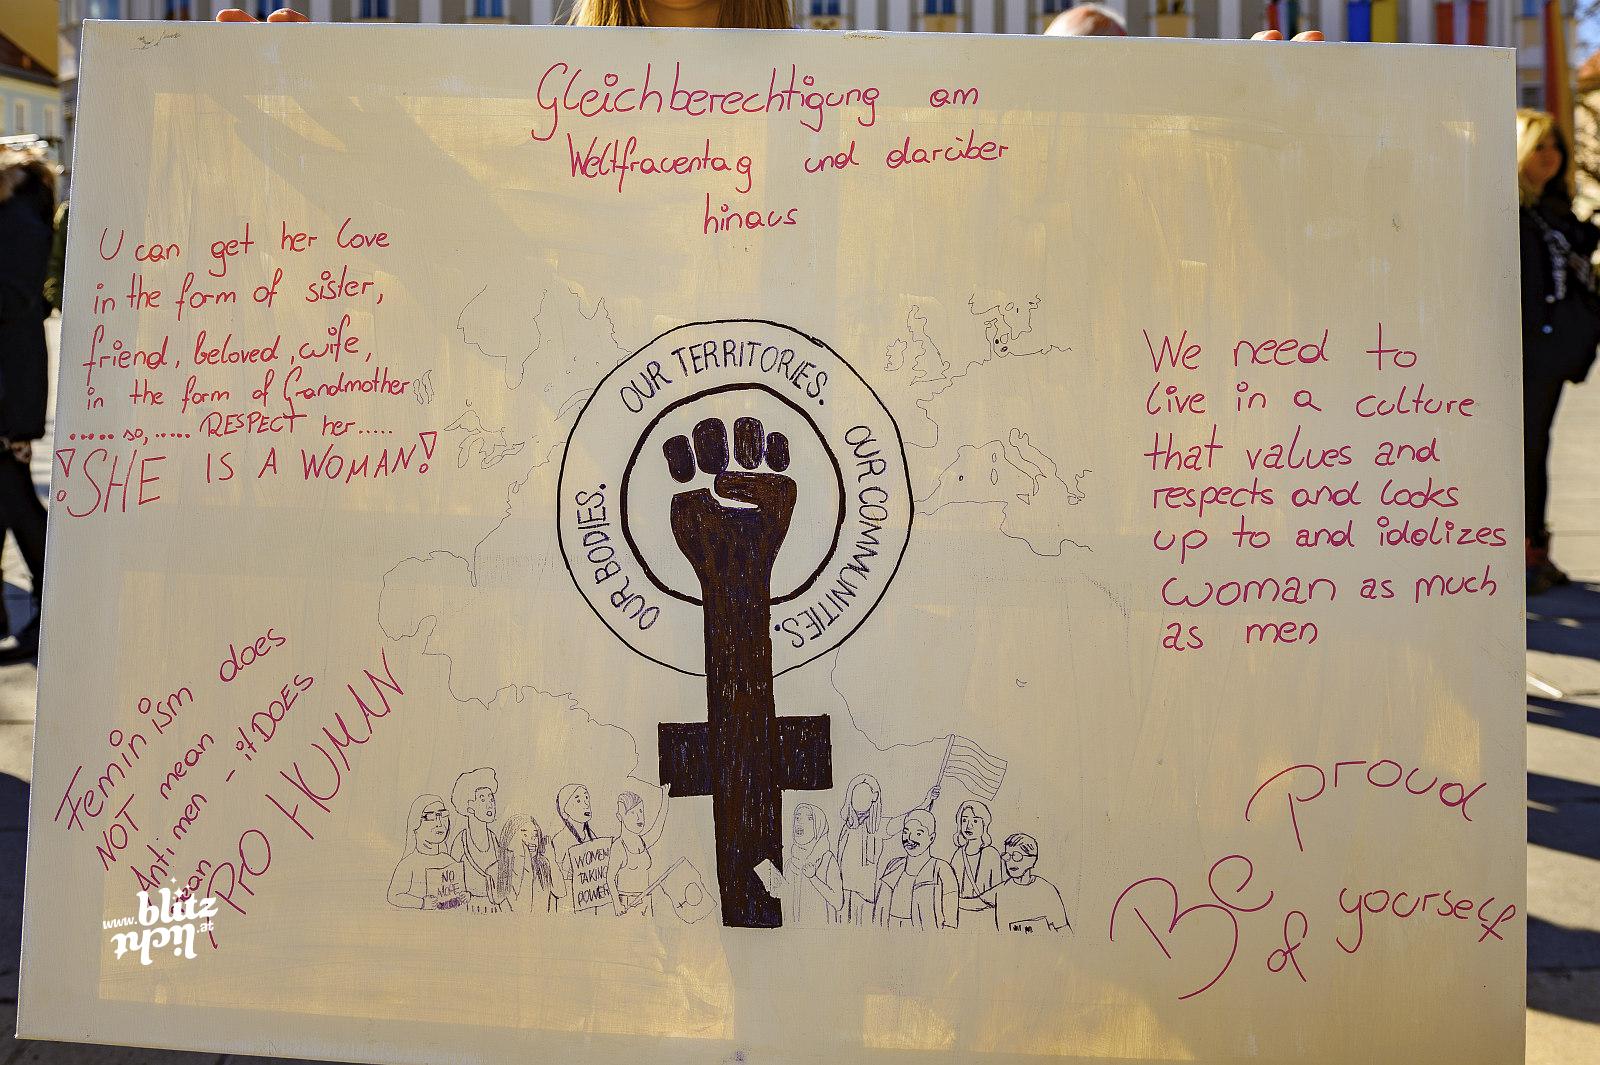 Gleichberechtigung am
Weltfrauentag und darüber
hinaus
U can get her love
in the form of sister,
friend, beloved, wife,
in the form of Grandmother
..... so, ..... RESPECT her.....
¡SHE IS A WOMAN!
OUR TERRITORIES.
OUR COMMUNITIES.
OUR BODIES.
We need to
live in a culture
that values and
respects and looks
up to and idolizes
woman as much
as men
Feminism does
NOT mean
Anti men - it DOES
mean
PrO HUMAN
NO
MORE
WOMEN
TAKING
POWER
Be proud
of yourself
www.blitz
licht.at